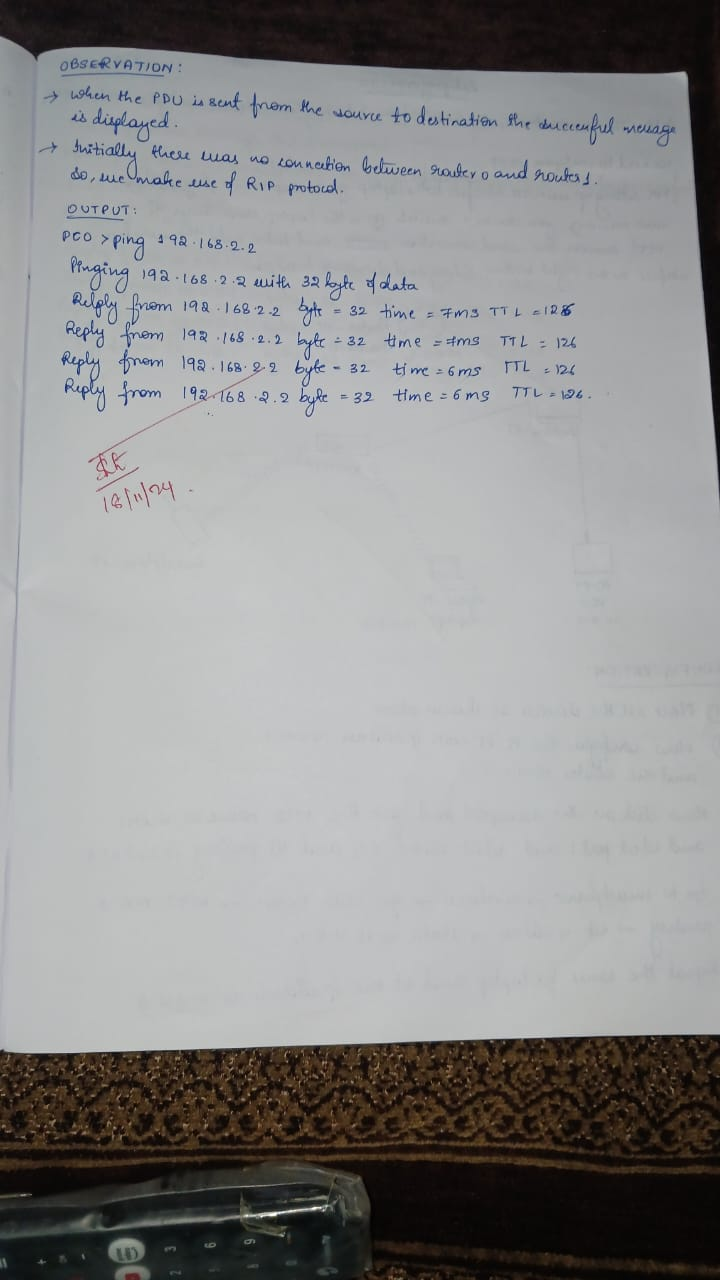 OBSERVATION:
→ When the PDU is sent from the source to destination the successful message
is displayed.
→ Initially there was no connection between router 0 and router 1.
So, we make use of RIP protocol.
OUTPUT:
PC0 > ping 192.168.2.2
Pinging 192.168.2.2 with 32 byte of data
Relply from 192.168.2.2 byte = 32 time = 7ms TTL = 126
Reply from 192.168.2.2 byte = 32 time = 7ms TTL = 126
Reply from 192.168.2.2 byte = 32 time = 6ms TTL = 126
Reply from 192.168.2.2 byte = 32 time = 6ms TTL = 126.
18/11/24